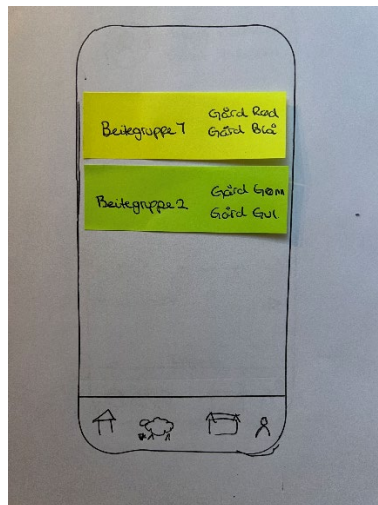 Beitegruppe 1
Gård Rød
Gård Blå
Beitegruppe 2
Gård Grøn
Gård Gul